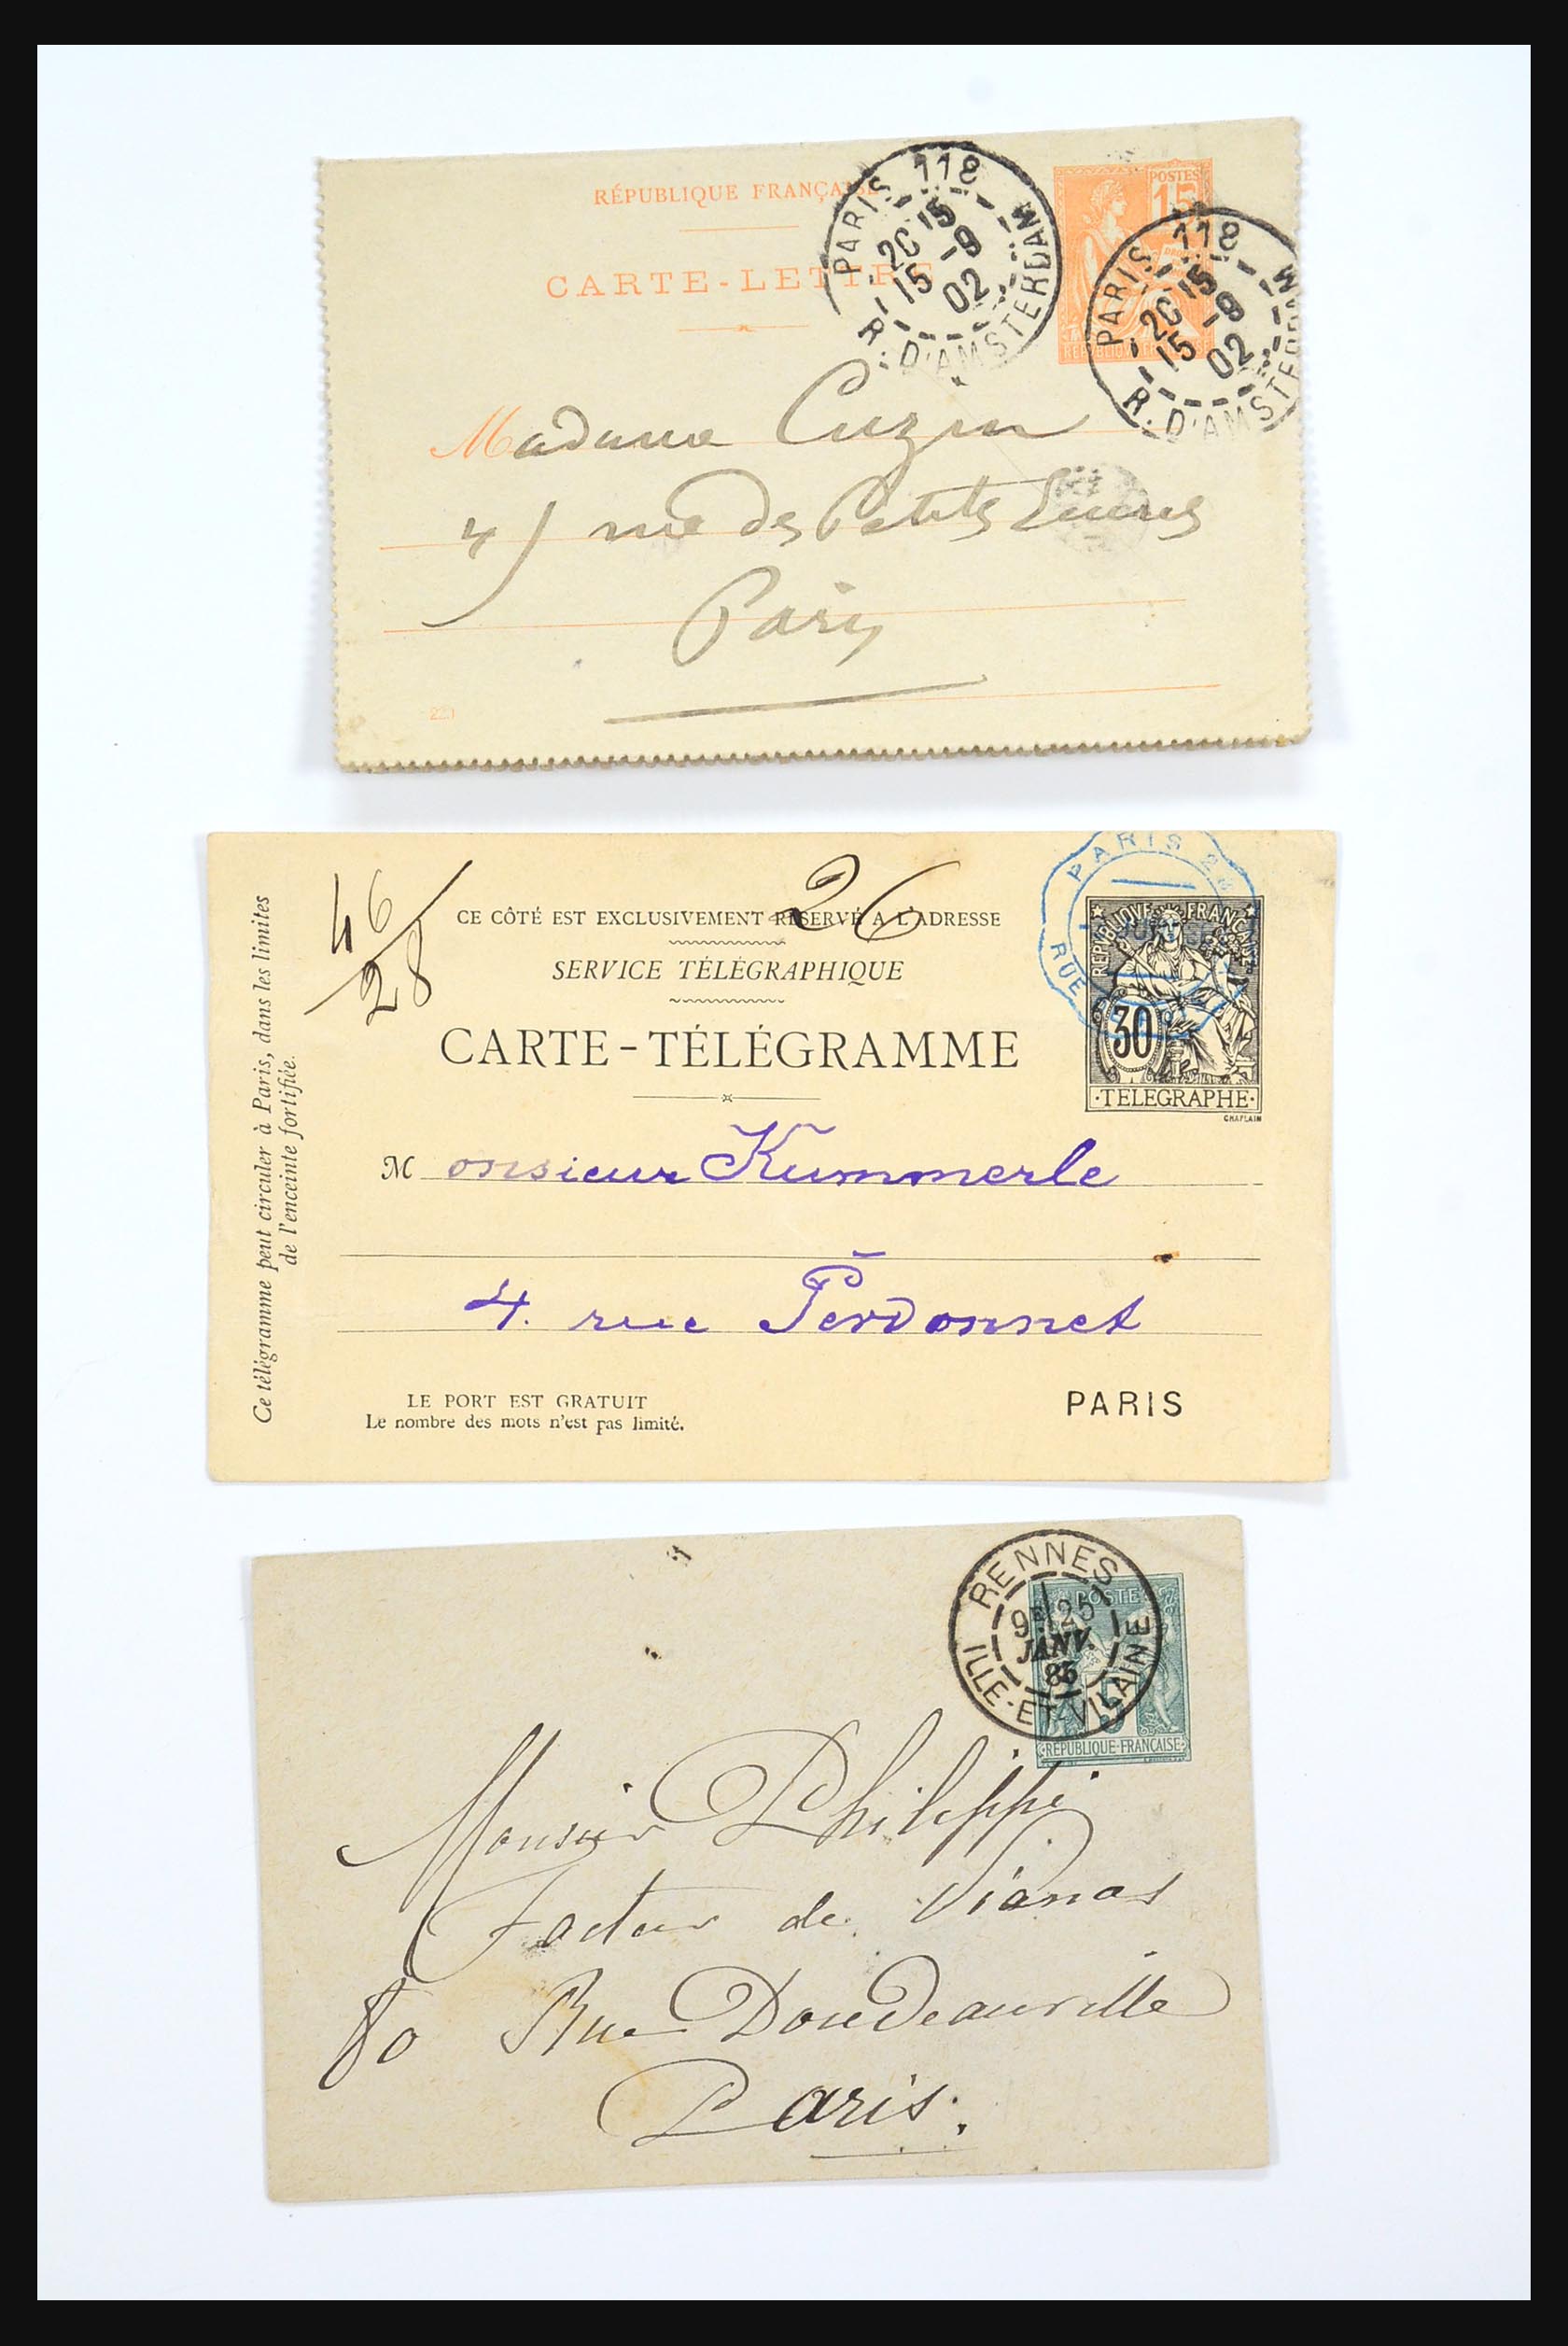 RÉPUBLIQUE FRANÇAISE
CARTE-LETTRE
PARIS 118
20 15
15 -9
02
R. D'AMSTERDAM
POSTES
15
PARIS 118
20 15
15 -9
02
R. D'AMSTERDAM
Madame Cuzin
rue des Petits Ecuries
Paris
221
46
28
26
CE CÔTÉ EST EXCLUSIVEMENT RÉSERVÉ A L'ADRESSE
SERVICE TÉLÉGRAPHIQUE
CARTE-TÉLÉGRAMME
PARIS
RUE
REPUBLIQUE FRANÇAISE
30
TELEGRAPHE
CHAPLAIN
Ce télégramme peut circuler à Paris, dans les limites
de l'enceinte fortifiée.
Monsieur Kummerle
4. rue Perdonnet
LE PORT EST GRATUIT
Le nombre des mots n'est pas limité.
PARIS
RENNES
9E 25
JANV.
85
ILLE-ET-VILAINE
POSTE
5
RÉPUBLIQUE-FRANÇAISE
Monsieur Philippi
Facteur de Pianos
80 Rue Doudeauville
Paris.